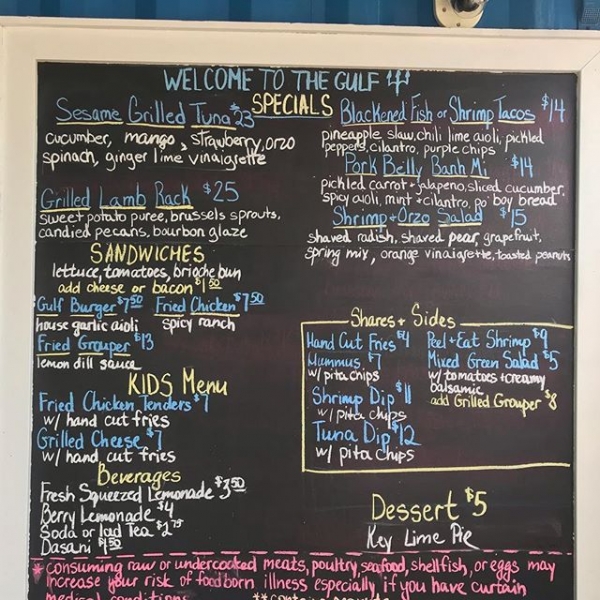 WELCOME TO THE GULF
SPECIALS
Sesame Grilled Tuna $23
cucumber, mango, strawberry, orzo
spinach, ginger lime vinaigrette
Grilled Lamb Rack $25
sweet potato puree, brussels sprouts,
candied pecans, bourbon glaze
Blackened Fish or Shrimp Tacos $14
pineapple slaw, chili lime aioli, pickled
peppers, cilantro, purple chips
Pork Belly Banh Mi $14
pickled carrot + jalapeno, sliced cucumber,
spicy aioli, mint + cilantro, po' boy bread
Shrimp + Orzo Salad $15
shaved radish, shaved pear, grapefruit,
spring mix, orange vinaigrette, toasted peanuts
SANDWICHES
lettuce, tomatoes, brioche bun
add cheese or bacon $1.50
Gulf Burger $7.50 Fried Chicken $7.50
house garlic aioli spicy ranch
Fried Grouper $13
lemon dill sauce
KIDS Menu
Fried Chicken Tenders $7
w/ hand cut fries
Grilled Cheese $7
w/ hand cut fries
Beverages
Fresh Squeezed Lemonade $3.50
Berry Lemonade $4
Soda or Iced Tea $2.75
Dasani $1.50
Shares + Sides
Hand Cut Fries $4
Hummus $7
w/ pita chips
Shrimp Dip $11
w/ pita chips
Tuna Dip $12
w/ pita chips
Peel + Eat Shrimp $9
Mixed Green Salad $5
w/ tomatoes + creamy
balsamic
add Grilled Grouper $8
Dessert $5
Key Lime Pie
* consuming raw or undercooked meats, poultry, seafood, shellfish, or eggs may
increase your risk of foodborn illness especially if you have curtain
medical conditions
** contains peanuts